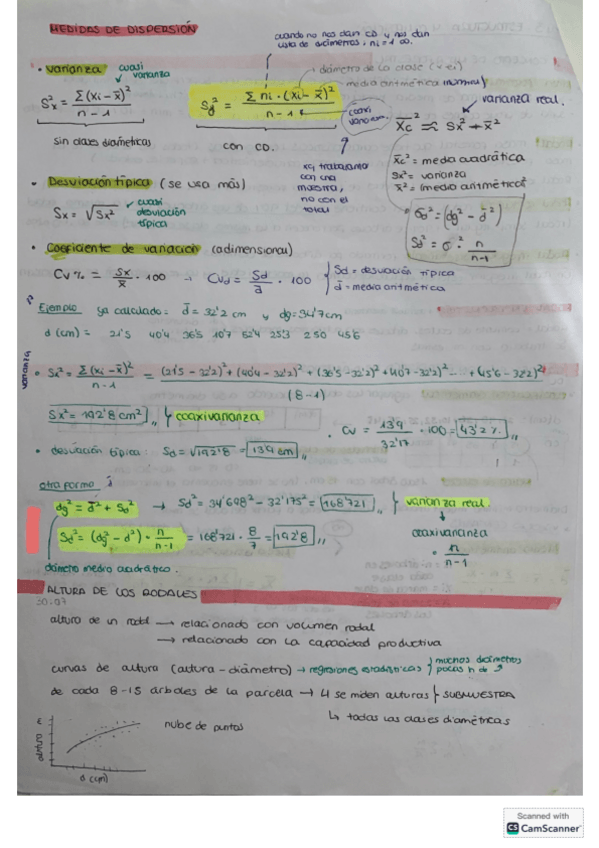 MEDIDAS DE DISPERSIÓN
cuando no nos dan CD y nos dan
lista de diámetros, ni = 1 ∞.
• varianza
cuasi
varianza
Sx² = Σ(xi - x̄)² / n - 1
sin clases diamétricas
Sd² = Σ ni · (xi - x̄)² / n - 1
con CD.
diámetro de la clase (xei)
media aritmética (normal)
x̄c² ≈ Sx² + x̄²
varianza real.
x̄c² = media cuadrática
Sx² = varianza
x̄² = (media aritmética)²
xq trabajamos
con una
muestra,
no con el
total
• Desviación típica (se usa más)
Sx = √Sx²
cuasi
desviación
típica
σ² = (dg² - d̄²)
Sd² = σ² · n / n-1
• Coeficiente de variación (adimensional)
Cv % = Sx / x̄ · 100 → CVd = Sd / d̄ · 100
Sd = desviación típica
d̄ = media aritmética
Ejemplo ya calculado: d̄ = 32'2 cm y dg = 34'7cm
d (cm) = 21'5 40'4 36'5 10'7 52'4 25'3 25'0 45'6
varianza
• Sx² = Σ(xi - x̄)² / n - 1 = (21'5 - 32'2)² + (40'4 - 32'2)² + (36'5 - 32'2)² + (40'7 - 32'2)² ... + (45'6 - 32'2)² / (8 - 1)
Sx² = 192'8 cm² ,, coaxivarianza
• Cv = 13'9 / 32'17 · 100 = 43'2 % ,,
• desviación típica: Sd = √192'8 = 13'9 cm ,,
otra forma:
dg² = d̄² + Sd² → Sd² = 34'698² - 32'175² = 168'721 ,, varianza real
Sd² = (dg² - d̄²) · n / n-1 = 168'721 · 8 / 7 = 192'8 ,,
coaxivarianza
• n / n-1
diámetro medio cuadrático.
ALTURA DE LOS RODALES
altura de un rodal → relacionado con volumen rodal
→ relacionado con la capacidad productiva
curvas de altura (altura - diámetro) → regresiones estadísticas
muchos diámetros
pocas h de
de cada 8-15 árboles de la parcela → 4 se miden alturas SUBMUESTRA
↳ todas las clases diamétricas
altura
nube de puntos
d (cm)
Scanned with
CS CamScanner